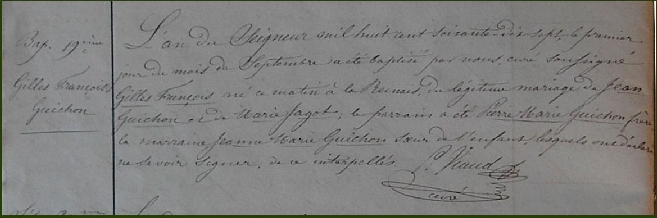 Bap. 19ème
Gilles François
Guichon
L'an du Seigneur mil huit cent soixante-dix-sept, le premier
jour du mois de Septembre a été baptisé par nous, curé soussigné
Gilles François né ce matin à la du légitime mariage de Jean
Guichon et de Marie Jagot; le parrain a été Pierre Marie Guichon frère
la marraine Jeanne Marie Guichon sœur de l'enfant, lesquels ont déclaré
ne savoir signer, de ce interpellés.
Viaud
curé